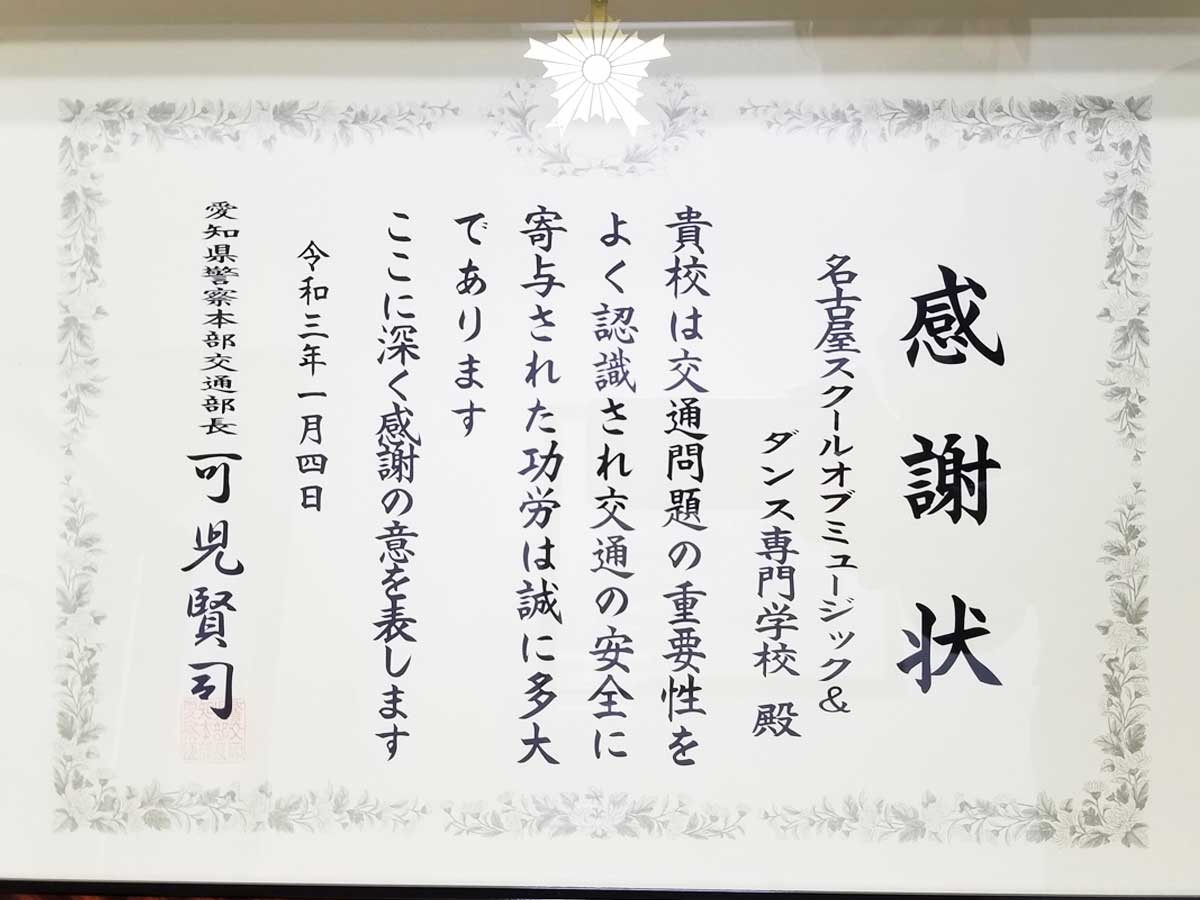 感謝状
名古屋スクールオブミュージック&
ダンス専門学校 殿
貴校は交通問題の重要性を
よく認識され交通の安全に
寄与された功労は誠に多大
であります
ここに深く感謝の意を表します
令和三年一月四日
愛知県警察本部交通部長 可児賢司